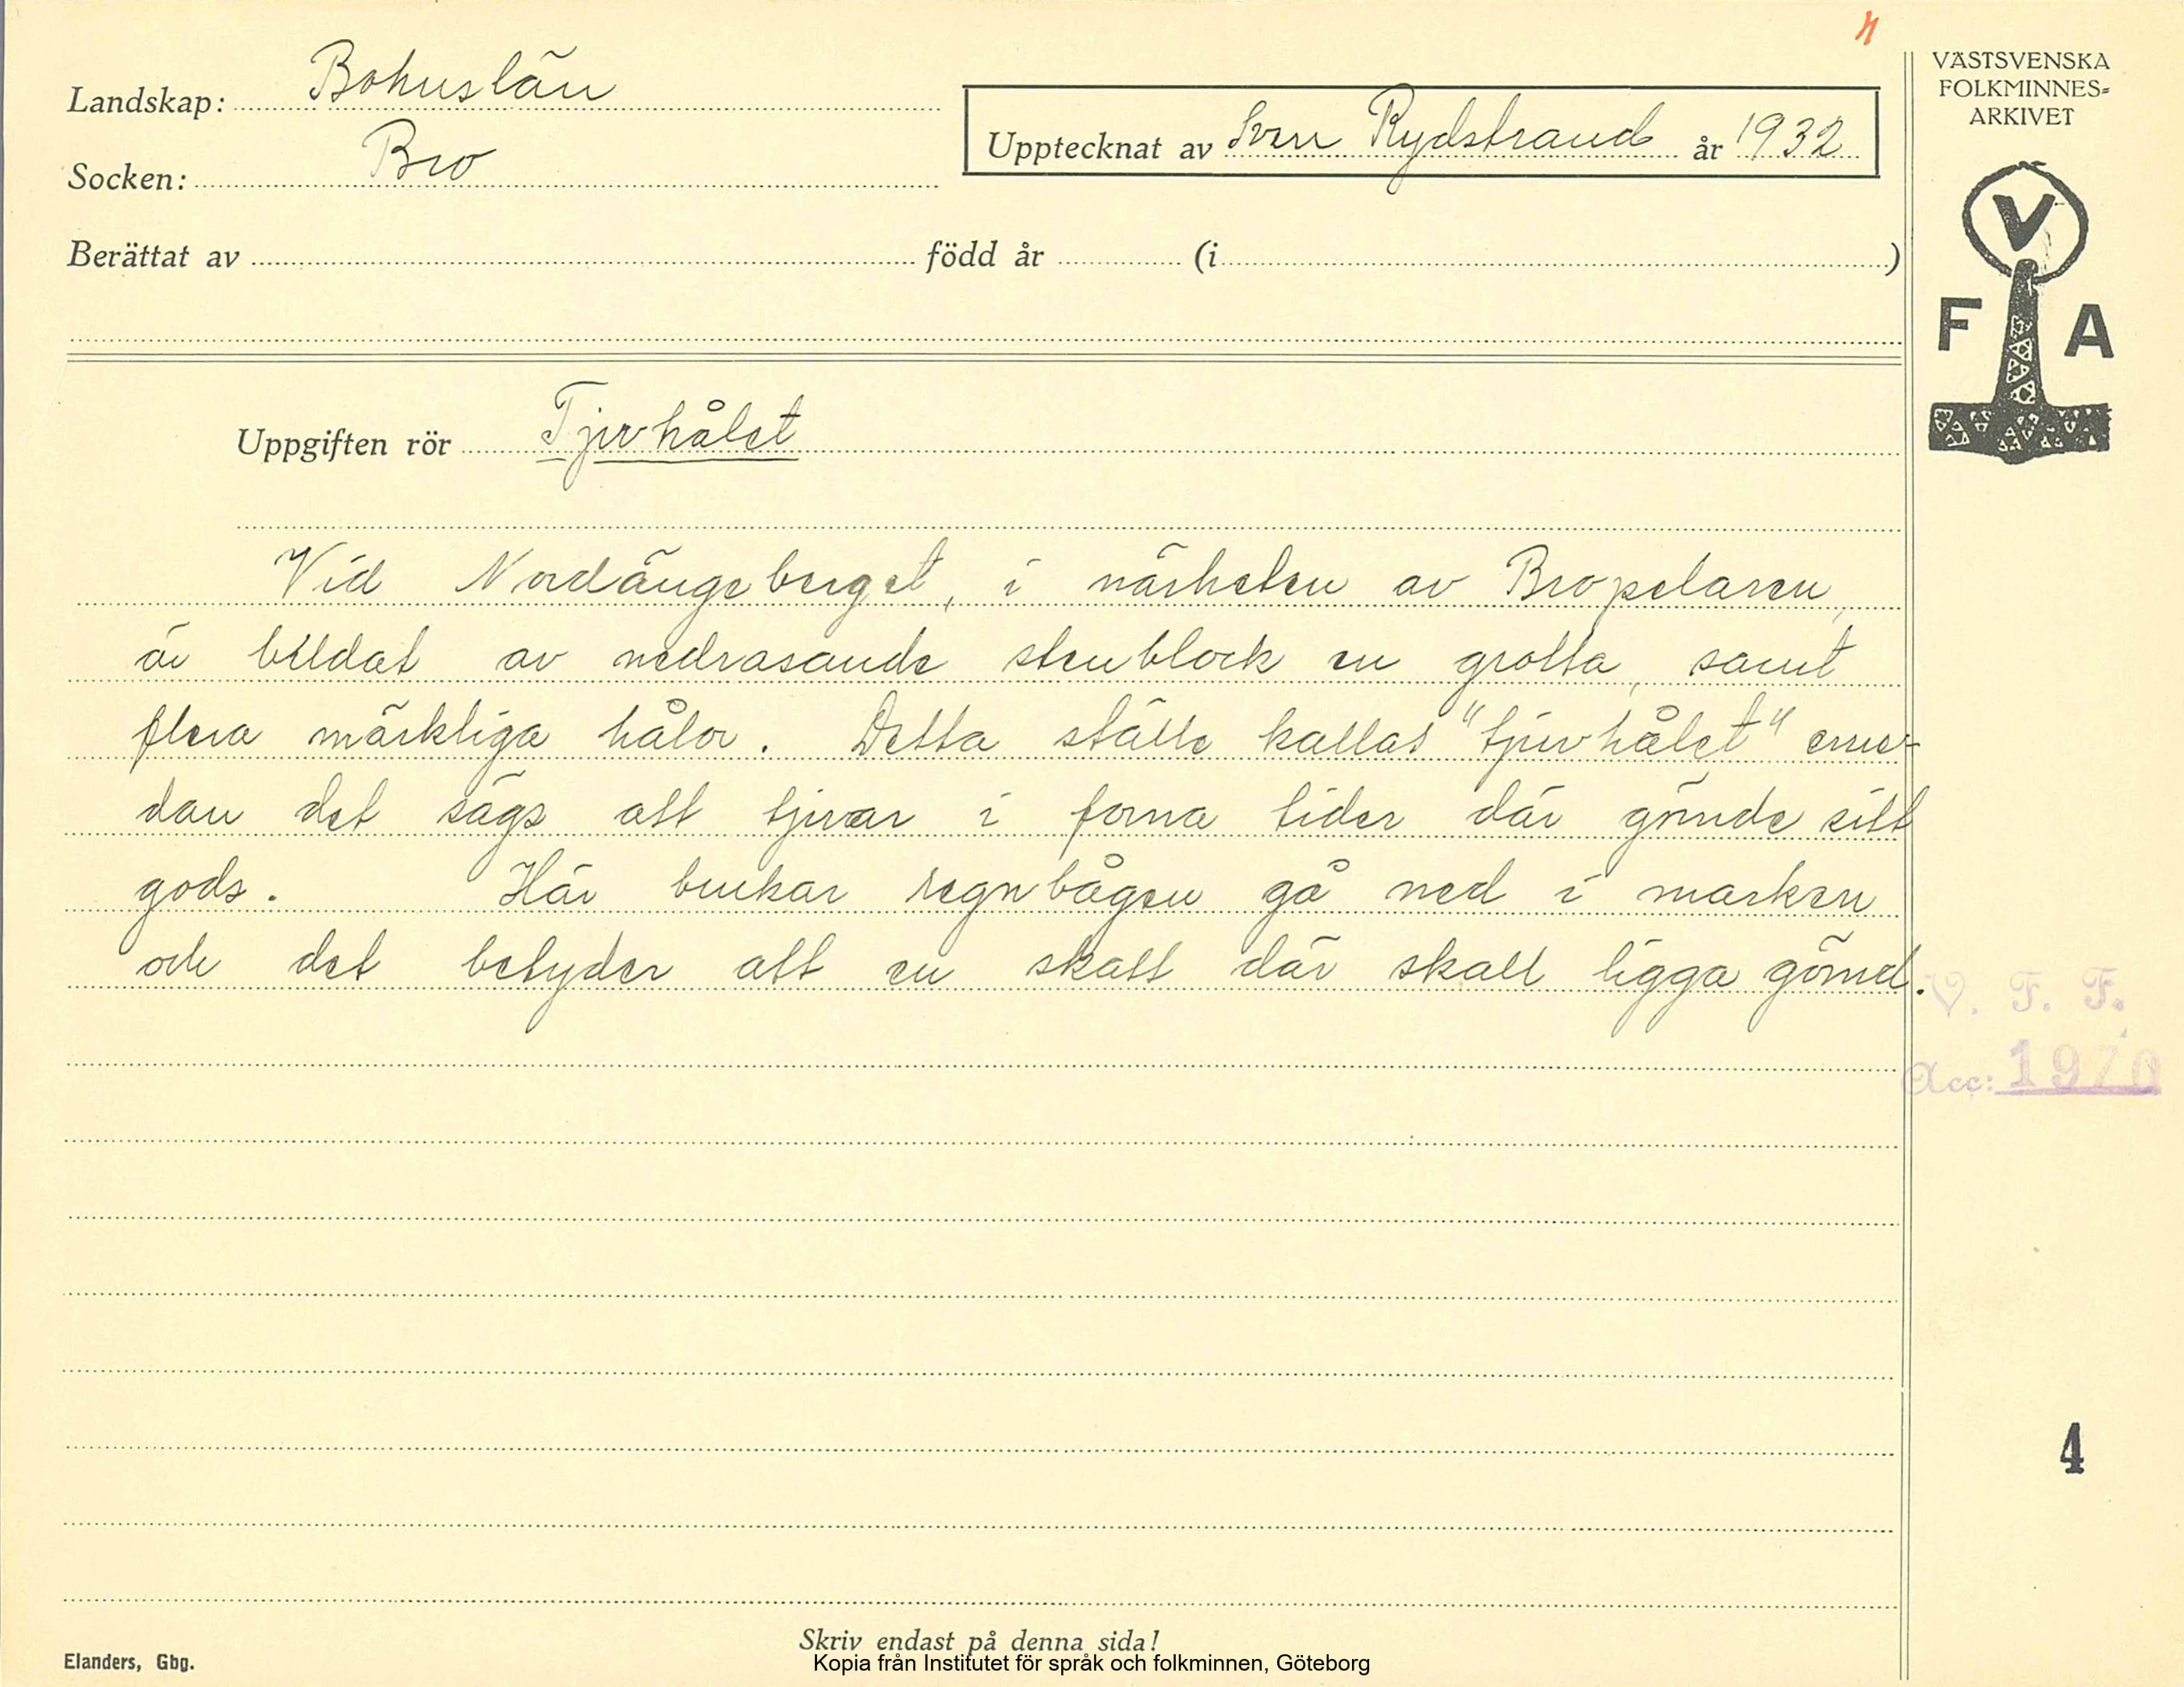 4
Landskap: Bohuslän
Socken: Bro
Upptecknat av Sven Rydstrand år 1932
Berättat av född år (i )
VÄSTSVENSKA
FOLKMINNES=
ARKIVET
V
F A
Uppgiften rör Tjuvhålet
Vid Nordängeberget, i närheten av Bropelaren,
är bildat av nedrasande stenblock en grotta, samt
flera märkliga hålor. Detta ställe kallas "tjuvhålet" eme-
dan det sägs att tjuvar i forna tider där gömde sitt
gods. Här brukar regnbågen gå ned i marken
och det betyder att en skatt där skall ligga gömd.
V. F. F.
Acc: 1970
4
Skriv endast på denna sida!
Elanders, Gbg.
Kopia från Institutet för språk och folkminnen, Göteborg